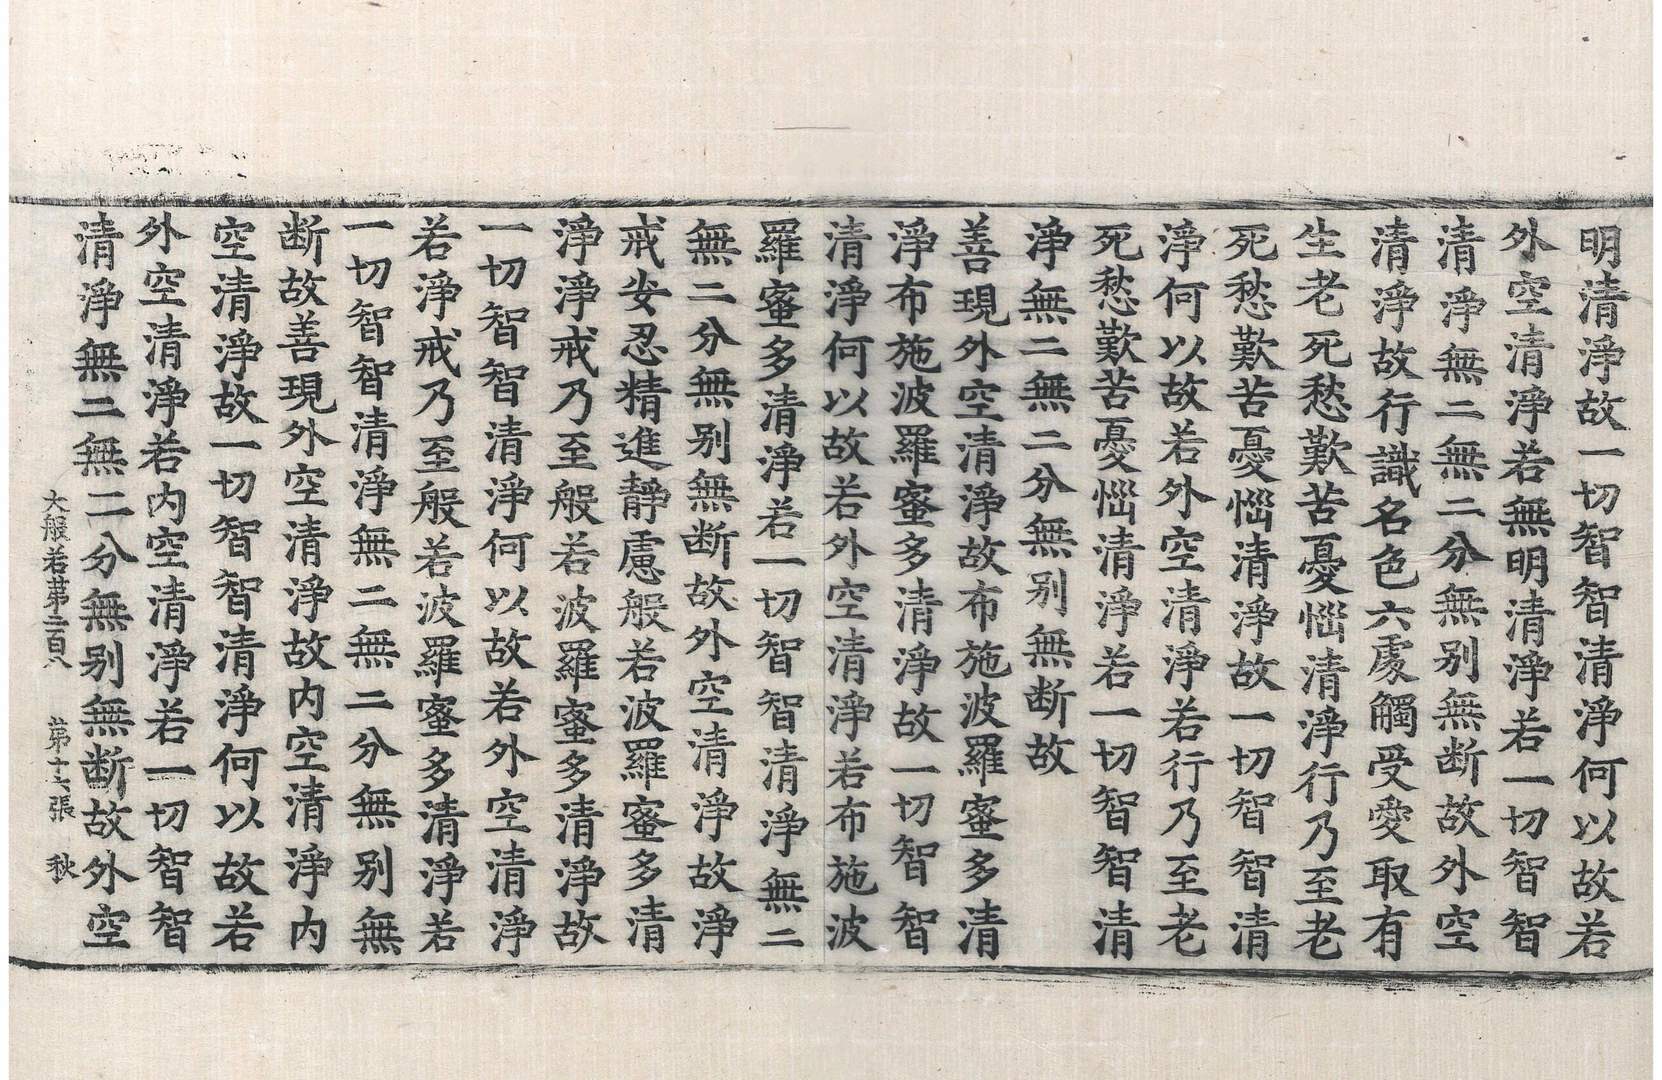 明清淨故一切智智清淨何以故若
外空清淨若無明清淨若一切智智
清淨無二無二分無別無断故外空
清淨故行識名色六處觸受愛取有
生老死愁歎苦憂惱清淨行乃至老
死愁歎苦憂惱清淨故一切智智清
淨何以故若外空清淨若行乃至老
死愁歎苦憂惱清淨若一切智智清
淨無二無二分無別無断故
善現外空清淨故布施波羅蜜多清
淨布施波羅蜜多清淨故一切智智
清淨何以故若外空清淨若布施波
羅蜜多清淨若一切智智清淨無二
無二分無別無断故外空清淨故淨
戒安忍精進靜慮般若波羅蜜多清
淨淨戒乃至般若波羅蜜多清淨故
一切智智清淨何以故若外空清淨
若淨戒乃至般若波羅蜜多清淨若
一切智智清淨無二無二分無別無
断故善現外空清淨故內空清淨內
空清淨故一切智智清淨何以故若
外空清淨若內空清淨若一切智智
清淨無二無二分無別無断故外空
大般若第二百八 第十六張 秋